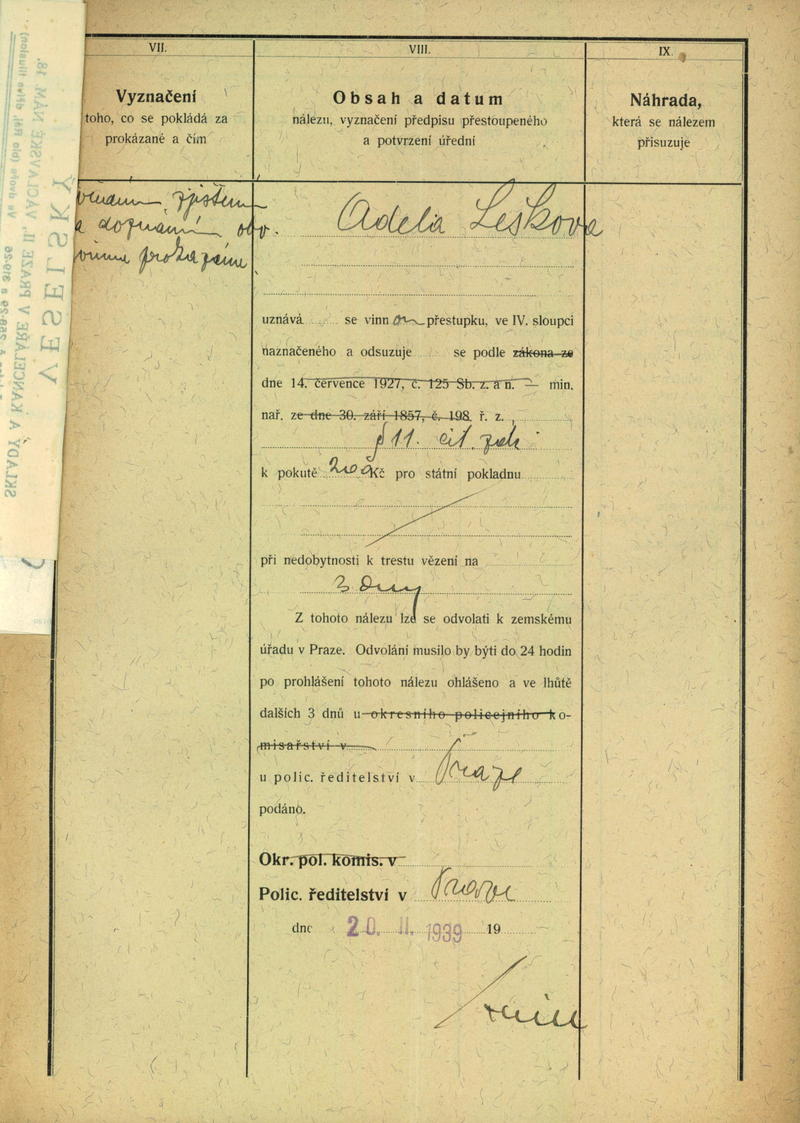 VII.
Vyznačení
toho, co se pokládá za
prokázané a čím
a doznání obv.
vinna prokázána
VIII.
Obsah a datum
nálezu, vyznačení předpisu přestoupeného
a potvrzení úřední
Adela Leškova
uznává se vinn ou přestupku, ve IV. sloupci
naznačeného a odsuzuje se podle zákona ze
dne 14. července 1927, č. 125 Sb. z. a n. — min.
nař. ze dne 30. září 1857, č. 198 ř. z.,
§ 11. cit. zák.
k pokutě 20 Kč pro státní pokladnu
při nedobytnosti k trestu vězení na
3 dny
Z tohoto nálezu lze se odvolati k zemskému
úřadu v Praze. Odvolání musilo by býti do 24 hodin
po prohlášení tohoto nálezu ohlášeno a ve lhůtě
dalších 3 dnů u okresního policejního ko-
misařství v
u polic. ředitelství v Praze
podáno.
Okr. pol. komis. v
Polic. ředitelství v Praze
dne 20. II. 1939 19
IX.
Náhrada,
která se nálezem
přisuzuje
VESELSKÝ
SKLADY A KANCELÁŘE V PRAZE II., VÁCLAVSKÉ NÁM.